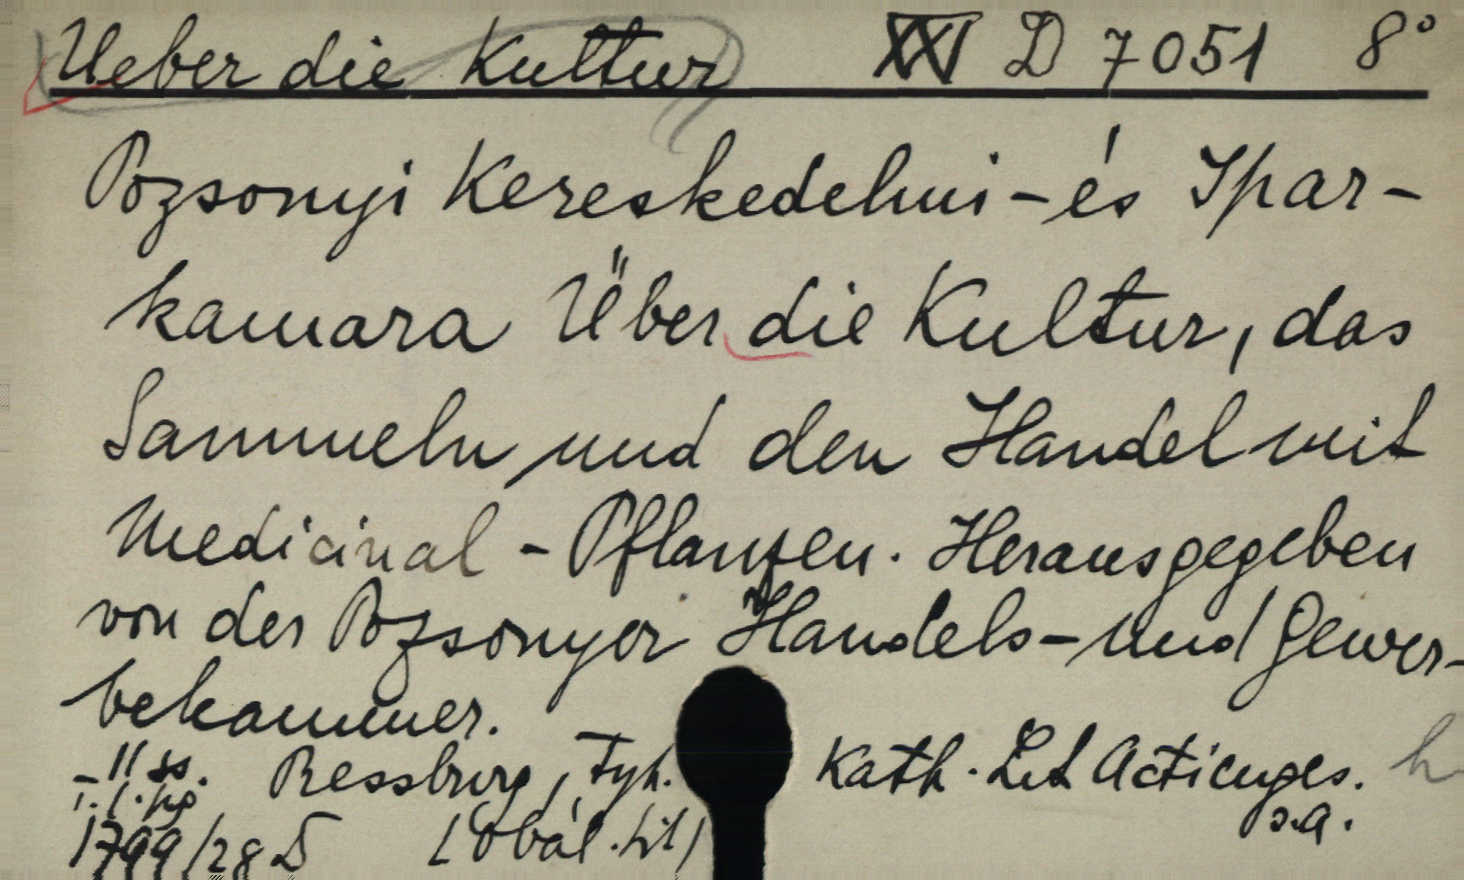 Ueber die Kultur XXI D 7051 8°
Pozsonyi Kereskedelmi-és Ipar-
kamara Über die Kultur, das
Sammeln und den Handel mit
Medicinal-Pflanzen. Herausgegeben
von der Pozsonyer Handels-und Gewer-
bekammer.
Pressburg, Typ. Kath. Lit Actienges.
s.a.
1799/28 (Obál. tit)